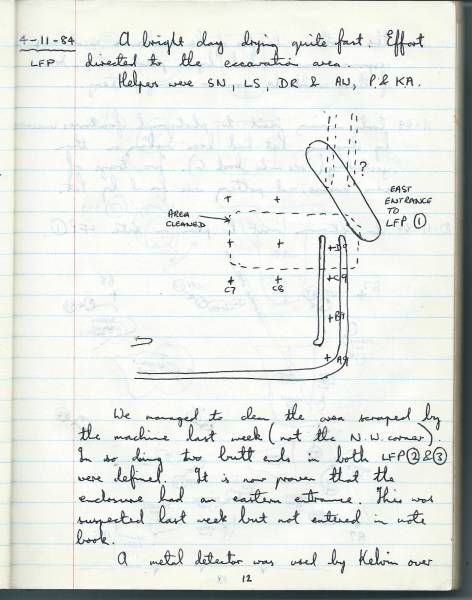 4-11-84 A bright day drying quite fast. Effort
LFP directed to the excavation area.
Helpers were SN, LS, DR & AW, P. & KA.
?
EAST
ENTRANCE
TO
LFP ①
AREA
CLEANED
D9
C7 C8 C9
B9
A9
We managed to clean the area scraped by
the machine last week (not the N.W. corner).
In so doing two butt ends in both LFP ② & ③
were defined. It is now proven that the
enclosure had an eastern entrance. This was
suspected last week but not entered in note
book.
A metal detector was used by Kelvin over
12